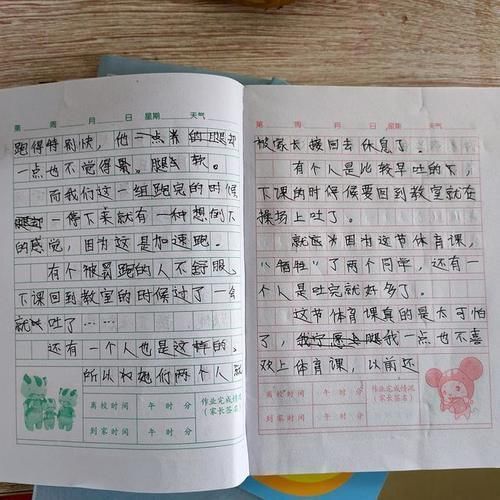 第 周 月 日 星期 天气
跑得特别快，他一点米的腿却
一点也不觉得累。腿不软。
而我们这一组跑完的时候
一停下来就有一种想倒下
的感觉，因为这是加速跑。
有个被罚跑的人不舒服，
下课回到教室的时候过了一会
就吐了……
还有一个人也是这样的，
所以他们两个人就
离校时间 午 时 分 作业完成情况
（家长签名）
到家时间 午 时 分
第 周 月 日 星期 天气
被家长接回去休息了
有个人是比较早吐的下，
下课的时候候要回到教室就在
操场上吐了。
就因为这节体育课，
“牺牲”了两个同学，还有一
个人是吐完就好多了。
这节体育课真的是太可怕
了，我一点也不喜
欢上体育课，以前还
离校时间 午 时 分 作业完成情况
（家长签名）
到家时间 午 时 分